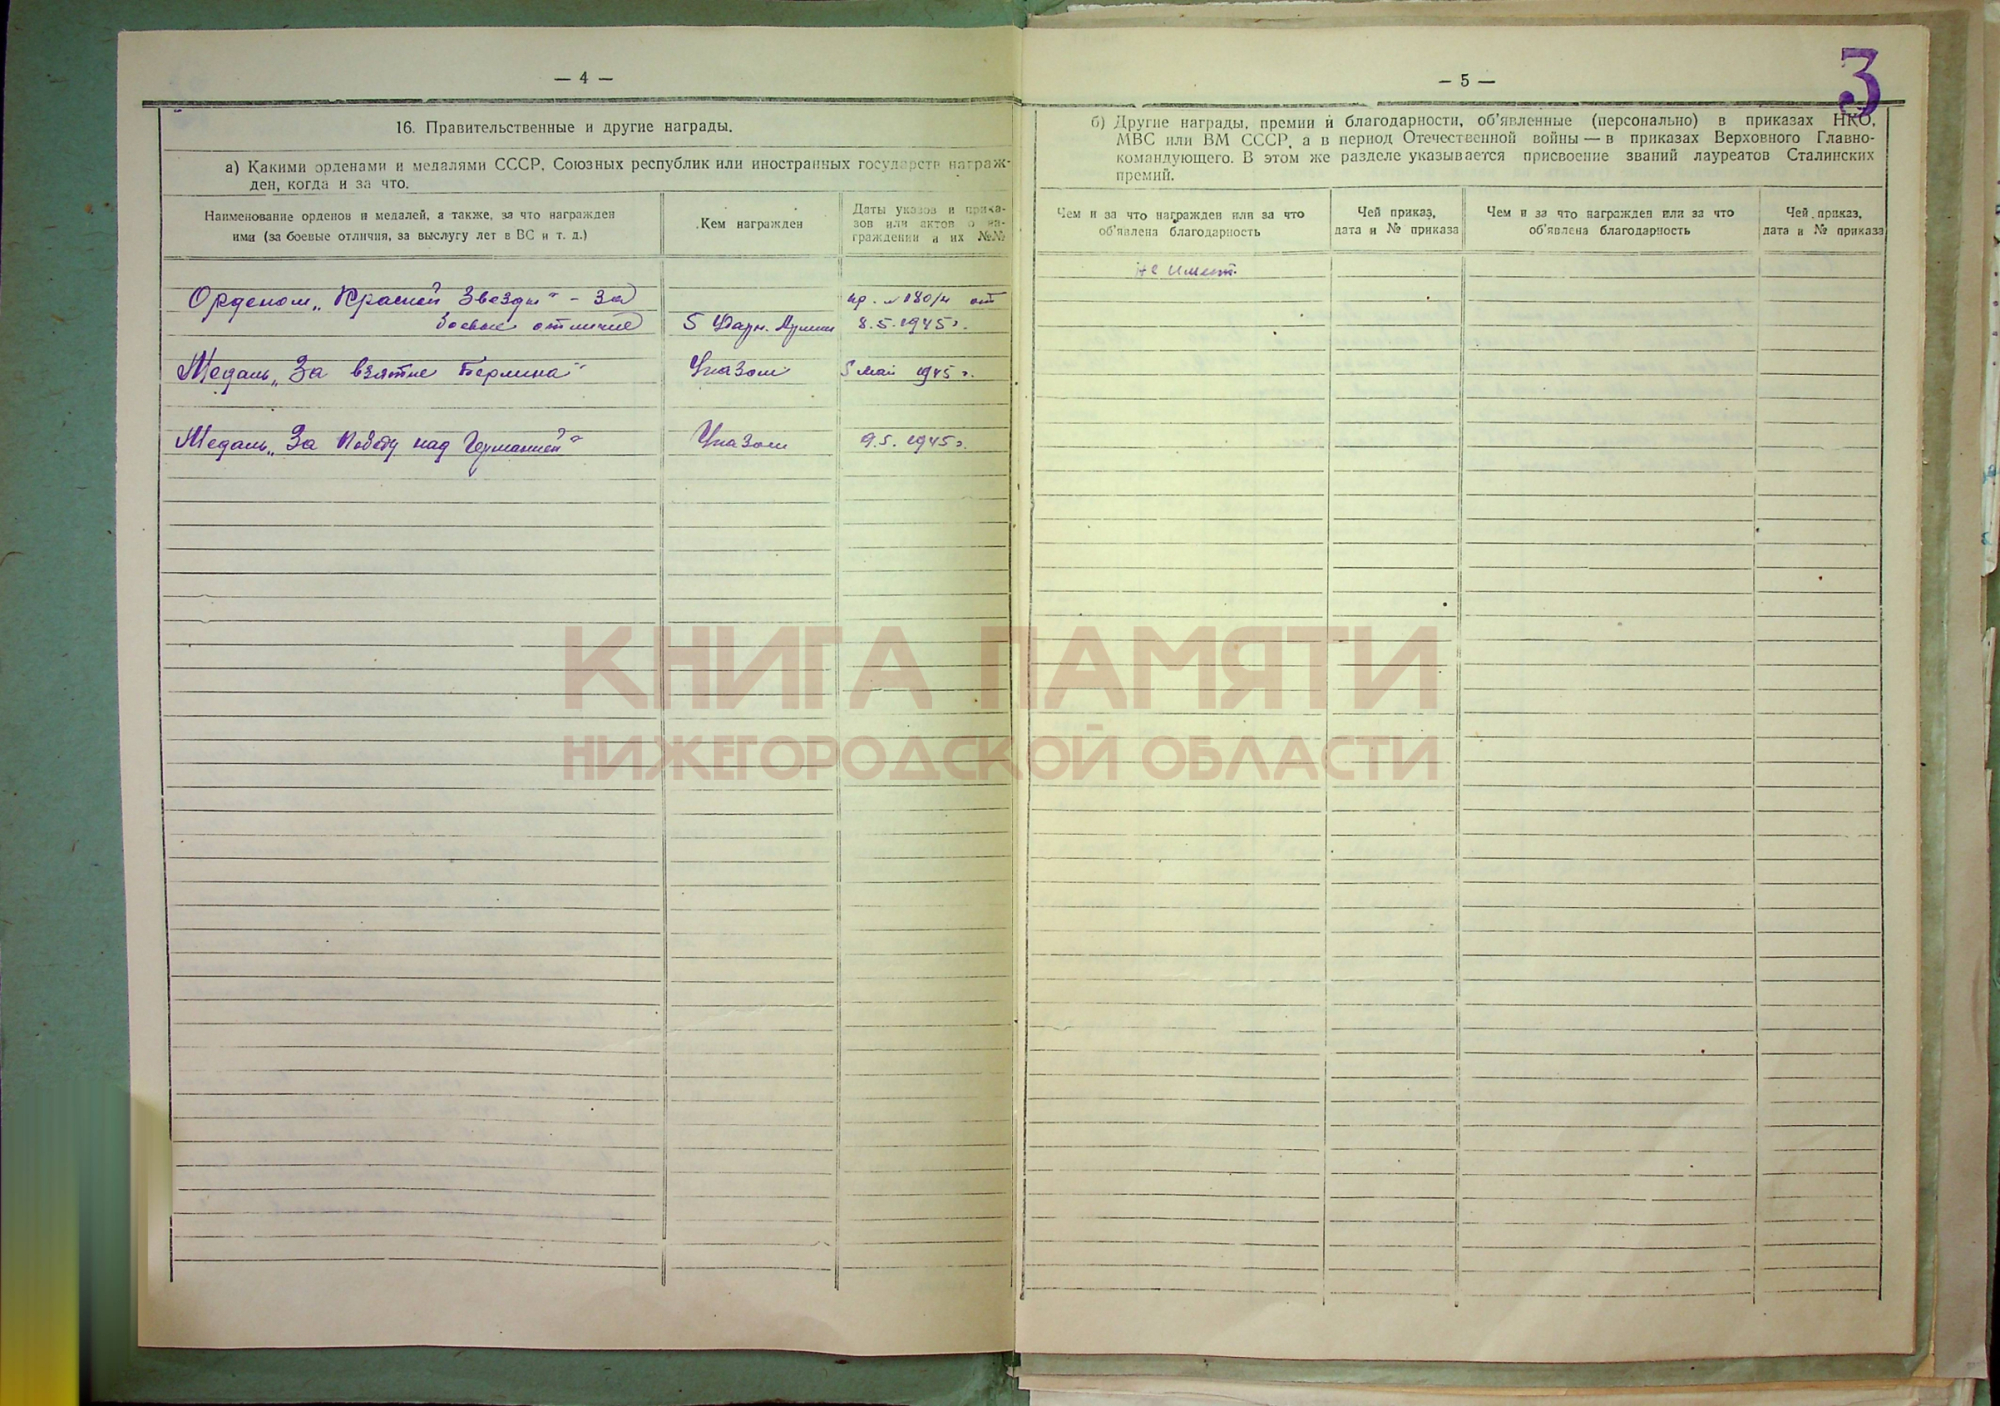 — 4 —
16. Правительственные и другие награды.
а) Какими орденами и медалями СССР, Союзных республик или иностранных государств награж-
ден, когда и за что.
Наименование орденов и медалей, а также, за что награжден
ими (за боевые отличия, за выслугу лет в ВС и т. д.)
Кем награжден
Даты указов и прика-
зов или актов о на-
граждении и их №№
Орденом „Красной Звезды" - за
боевые отличие
5 Ударн. Армии
пр. № 180/н от
8.5.1945г.
Медаль „За взятие Берлина"
Указом
5 май 1945 г.
Медаль „За Победу над Германией"
Указом
9.5.1945г.
— 5 —
3
б) Другие награды, премии и благодарности, об'явленные (персонально) в приказах НКО,
МВС или ВМ СССР, а в период Отечественной войны — в приказах Верховного Главно-
командующего. В этом же разделе указывается присвоение званий лауреатов Сталинских
премий.
Чем и за что награжден или за что
об'явлена благодарность
Чей приказ,
дата и № приказа
Чем и за что награжден или за что
об'явлена благодарность
Чей приказ,
дата и № приказа
не имеет
КНИГА ПАМЯТИ
НИЖЕГОРОДСКОЙ ОБЛАСТИ